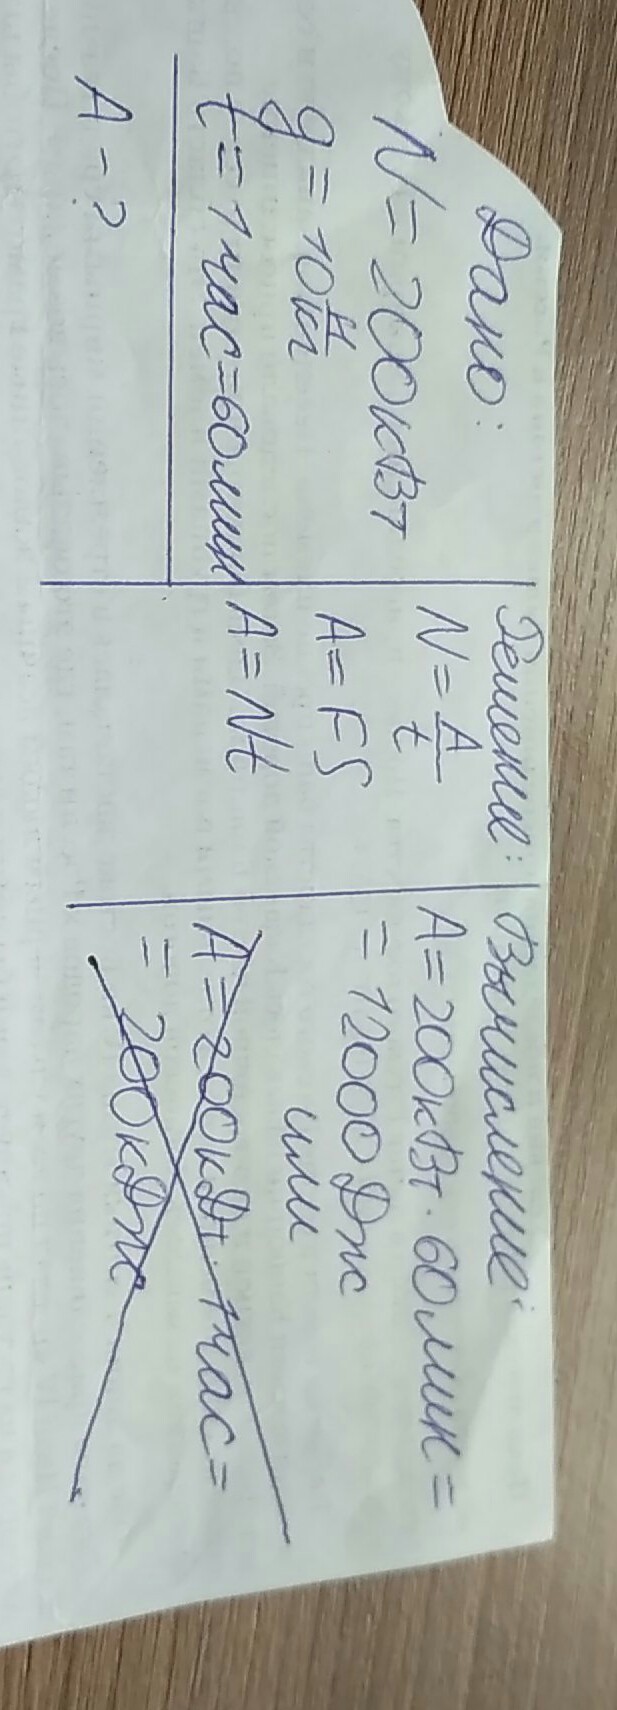 Дано:
N = 200кВт
g = 10 Н/кг
t = 1 час = 60мин
A - ?
Решение:
N = A/t
A = FS
A = Nt
Вычисление:
A = 200кВт · 60мин =
= 12000 Дж
или
A = 200кДт · 1час =
= 200кДж